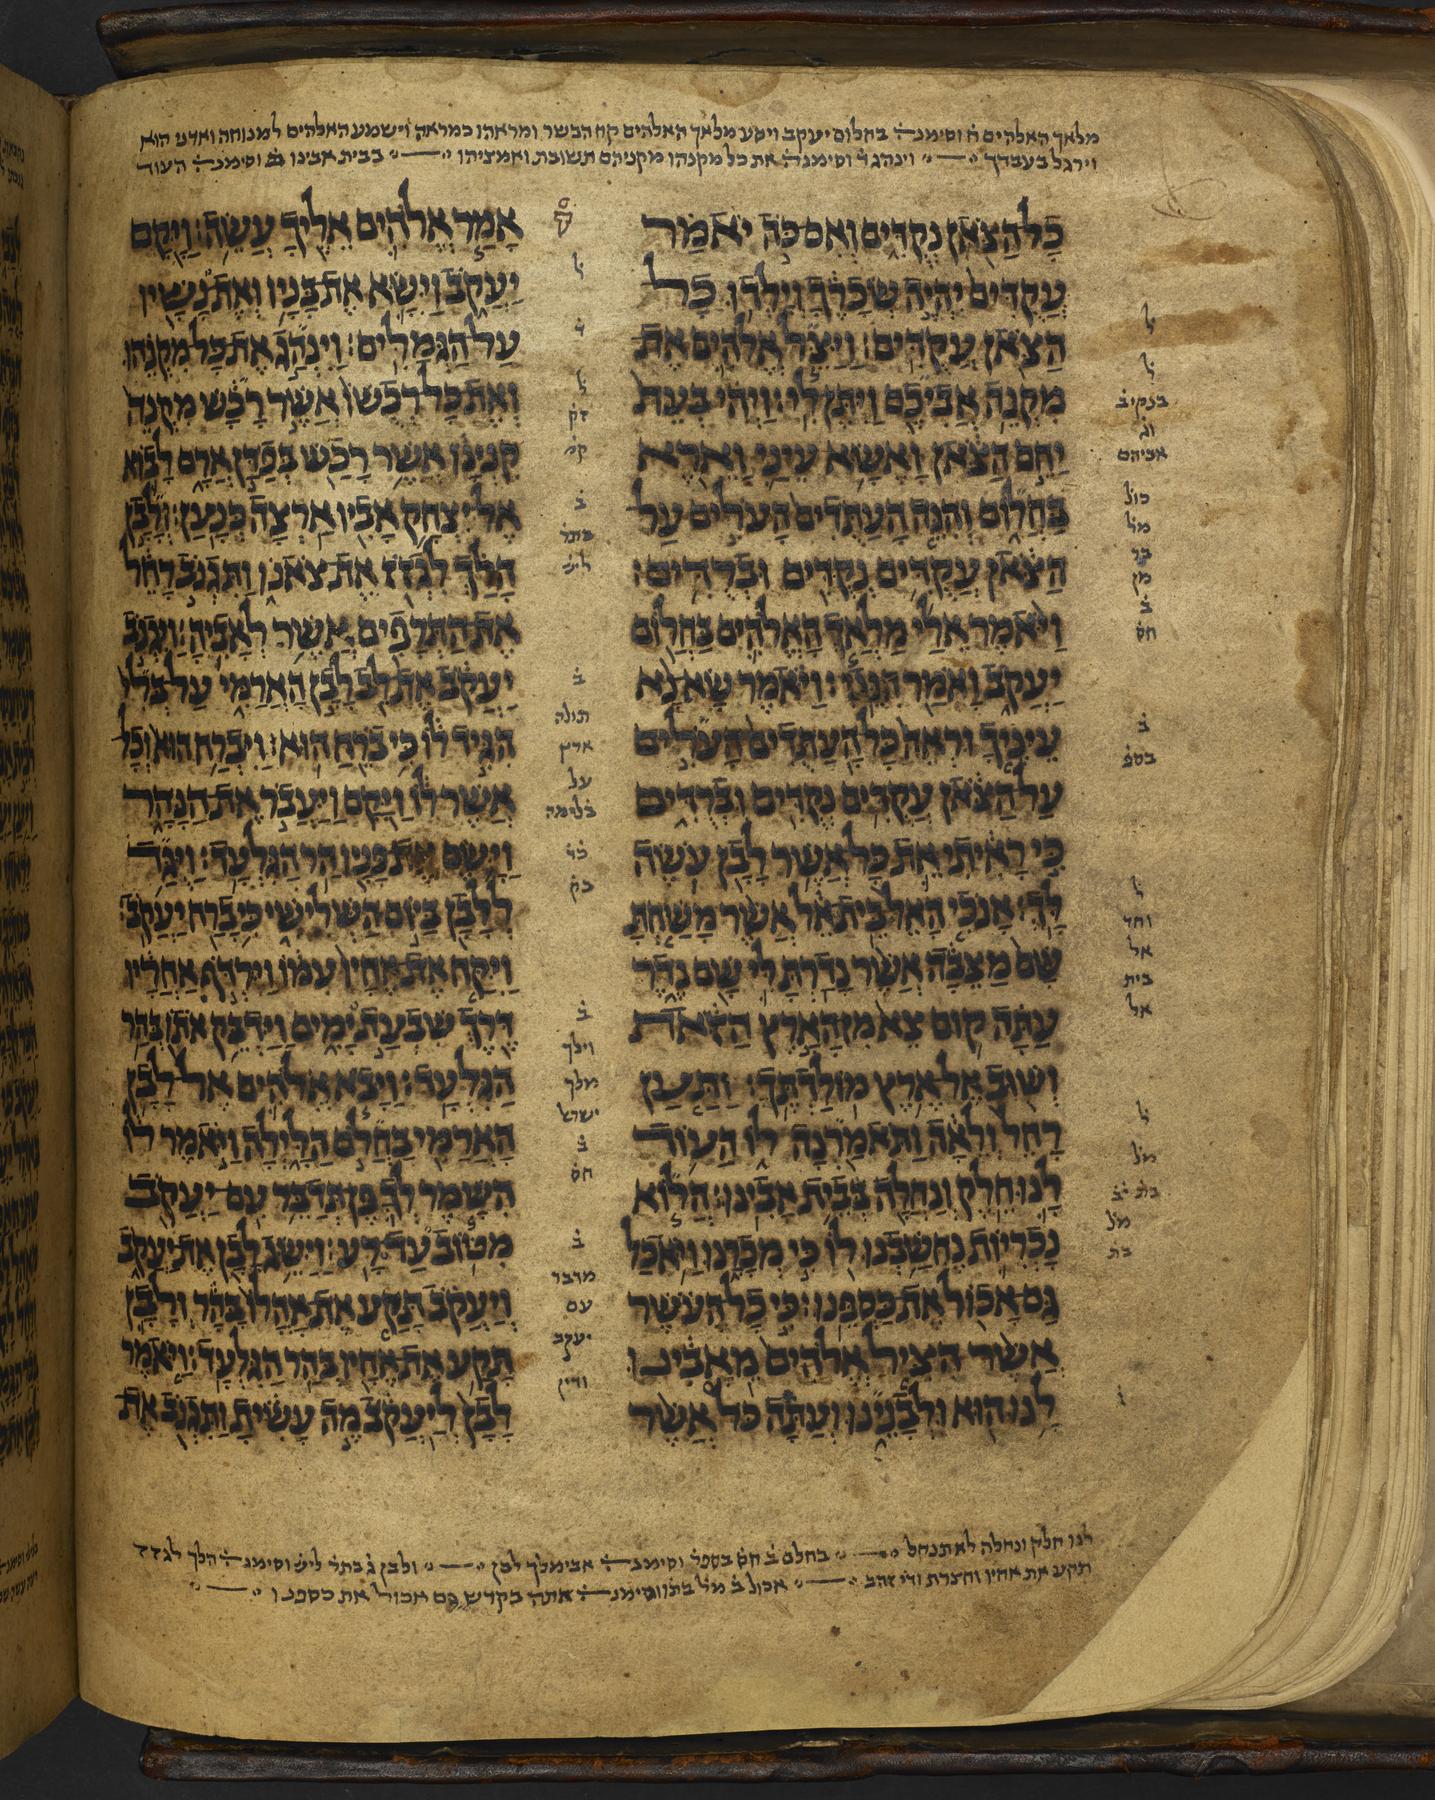 מלאך האלהים ח וסימנ בחלום יעקב ויסע מלאך האלהים קח הבשר ומראהו כמראה וישמע האלהים למנוחה ואדני הוא
וירגל בעבדך וינהג ד וסימנה את כל מקנהו מקניהם תשובת ואמציהו בבית אבינו וסימנ העוד
כָּל הַצֹּאן נְקֻדִּים וְאִם כֹּה יֹאמַר
עֲקֻדִּים יִהְיֶה שְׂכָרֶךָ וְיָלְדוּ כָל
הַצֹּאן עֲקֻדִּים׃ וַיַּצֵּל אֱלֹהִים אֶת
מִקְנֵה אֲבִיכֶם וַיִּתֶּן לִי׃ וַיְהִי בְּעֵת
יַחֵם הַצֹּאן וָאֶשָּׂא עֵינַי וָאֵרֶא
בַּחֲלוֹם וְהִנֵּה הָעַתֻּדִים הָעֹלִים עַל
הַצֹּאן עֲקֻדִּים נְקֻדִּים וּבְרֻדִּים׃
וַיֹּאמֶר אֵלַי מַלְאַךְ הָאֱלֹהִים בַּחֲלוֹם
יַעֲקֹב וָאֹמַר הִנֵּנִי׃ וַיֹּאמֶר שָׂא נָא
עֵינֶיךָ וּרְאֵה כָּל הָעַתֻּדִים הָעֹלִים
עַל הַצֹּאן עֲקֻדִּים נְקֻדִּים וּבְרֻדִּים
כִּי רָאִיתִי אֵת כָּל אֲשֶׁר לָבָן עֹשֶׂה
לָּךְ׃ אָנֹכִי הָאֵל בֵּית אֵל אֲשֶׁר מָשַׁחְתָּ
שָּׁם מַצֵּבָה אֲשֶׁר נָדַרְתָּ לִּי שָׁם נֶדֶר
עַתָּה קוּם צֵא מִן הָאָרֶץ הַזֹּאת
וְשׁוּב אֶל אֶרֶץ מוֹלַדְתֶּךָ׃ וַתַּעַן
רָחֵל וְלֵאָה וַתֹּאמַרְנָה לוֹ הַעוֹד
לָנוּ חֵלֶק וְנַחֲלָה בְּבֵית אָבִינוּ׃ הֲלוֹא
נָכְרִיּוֹת נֶחְשַׁבְנוּ לוֹ כִּי מְכָרָנוּ וַיֹּאכַל
גַּם אָכוֹל אֶת כַּסְפֵּנוּ׃ כִּי כָל הָעֹשֶׁר
אֲשֶׁר הִצִּיל אֱלֹהִים מֵאָבִינוּ
לָנוּ הוּא וּלְבָנֵינוּ וְעַתָּה כֹּל אֲשֶׁר
אָמַר אֱלֹהִים אֵלֶיךָ עֲשֵׂה׃ וַיָּקָם
יַעֲקֹב וַיִּשָּׂא אֶת בָּנָיו וְאֶת נָשָׁיו
עַל הַגְּמַלִּים׃ וַיִּנְהַג אֶת כָּל מִקְנֵהוּ
וְאֶת כָּל רְכֻשׁוֹ אֲשֶׁר רָכָשׁ מִקְנֵה
קִנְיָנוֹ אֲשֶׁר רָכַשׁ בְּפַדַּן אֲרָם לָבוֹא
אֶל יִצְחָק אָבִיו אַרְצָה כְּנָעַן׃ וְלָבָן
הָלַךְ לִגְזֹז אֶת צֹאנוֹ וַתִּגְנֹב רָחֵל
אֶת הַתְּרָפִים אֲשֶׁר לְאָבִיהָ׃ וַיִּגְנֹב
יַעֲקֹב אֶת לֵב לָבָן הָאֲרַמִּי עַל בְּלִי
הִגִּיד לוֹ כִּי בֹרֵחַ הוּא׃ וַיִּבְרַח הוּא וְכָל
אֲשֶׁר לוֹ וַיָּקָם וַיַּעֲבֹר אֶת הַנָּהָר
וַיָּשֶׂם אֶת פָּנָיו הַר הַגִּלְעָד׃ וַיֻּגַּד
לְלָבָן בַּיּוֹם הַשְּׁלִישִׁי כִּי בָרַח יַעֲקֹב׃
וַיִּקַּח אֶת אֶחָיו עִמּוֹ וַיִּרְדֹּף אַחֲרָיו
דֶּרֶךְ שִׁבְעַת יָמִים וַיַּדְבֵּק אֹתוֹ בְּהַר
הַגִּלְעָד׃ וַיָּבֹא אֱלֹהִים אֶל לָבָן
הָאֲרַמִּי בַּחֲלֹם הַלָּיְלָה וַיֹּאמֶר לוֹ
הִשָּׁמֶר לְךָ פֶּן תְּדַבֵּר עִם יַעֲקֹב
מִטּוֹב עַד רָע׃ וַיַּשֵּׂג לָבָן אֶת יַעֲקֹב
וְיַעֲקֹב תָּקַע אֶת אָהֳלוֹ בָּהָר וְלָבָן
תָּקַע אֶת אֶחָיו בְּהַר הַגִּלְעָד׃ וַיֹּאמֶר
לָבָן לְיַעֲקֹב מֶה עָשִׂיתָ וַתִּגְנֹב אֶת
ל
ל
אביהם
מל
ב
חס
ב
בספ
ל
וחד
אל
בית
אל
ל
מל
מל
ל
ב
ב
תולה
ארץ
על
בלימה
ב
וילך
מלך
ישראל
ב
חס
ב
מדבר
עם
יעקב
ודין
לנו חלק ונחלה לא תנחל בחלם ב חס בספר וסימנ אבימלך לבן ולבן ג בתר ליש וסימנ הלך לגזז
תקע את אחיו וחצרת ודי זהב אכול ב מל בתו וסימנ אתה בקדש גם אכול את כספנו